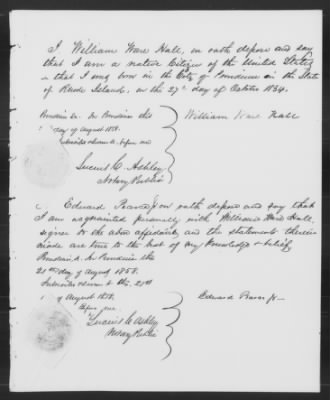 I, William Ware Hall, on oath depose and say
that I am a native Citizen of the United States
& that I was born in the City of Providence in the State
of Rhode Island, on the 27th day of October 1834.
Providence this
day of August 1858.
William Ware Hall
before me
Lucius C. Ashley
Notary Public
I Edward on oath depose and say that
I am acquainted personally with William Ware Hall
signer to the above affidavit, and the statements therein
made are true to the best of my knowledge & belief,
Providence the
21st day of August 1858.
this 21st
of August 1858,
before me
Edward
Lucius C. Ashley
Notary Public